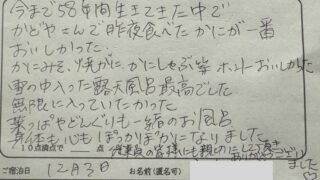 今まで58年間生きてきた中で
かどやさんで昨夜食べたかにが一番
おいしかった。
かにみそ、焼がに、かにしゃぶ等 ホントおいしかった
雪の中入った露天風呂最高でした
無限に入っていたかった
葉っぱやどんぐりも一緒のお風呂
身体も心もぽっかぽかになりました
10点満点で 点 従業員の皆様にも親切にして頂き
ありがとうござい
ました♡
ご宿泊日 12月3日 お名前(匿名可)